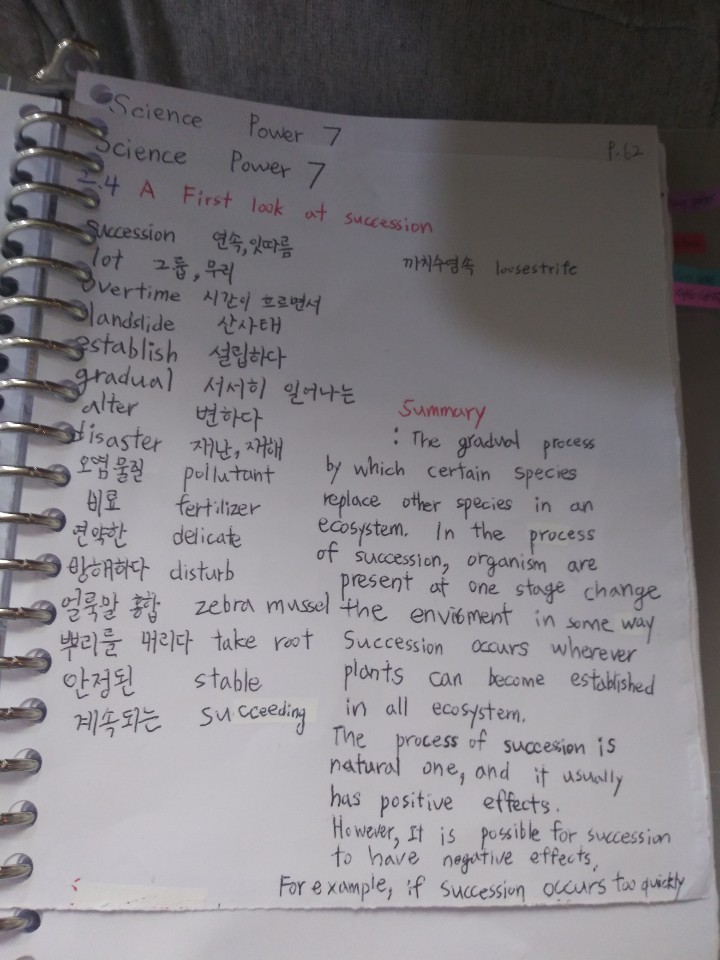 Science Power 7
P.62
Science Power 7
2.4 A First look at succession
succession 연속, 잇따름
lot 그룹, 무리
까치수염속 loosestrife
overtime 시간이 흐르면서
landslide 산사태
establish 설립하다
gradual 서서히 일어나는
alter 변하다
disaster 재난, 재해
오염물질 pollutant
비료 fertilizer
연약한 delicate
방해하다 disturb
얼룩말 홍합 zebra mussel
뿌리를 내리다 take root
안정된 stable
계속되는 succeeding
Summary
: The gradual process
by which certain species
replace other species in an
ecosystem. In the process
of succession, organism are
present at one stage change
the envibment in some way
Succession occurs wherever
plants can become established
in all ecosystem.
The process of succession is
natural one, and it usually
has positive effects.
However, It is possible for succession
to have negative effects,
For example, if succession occurs too quickly